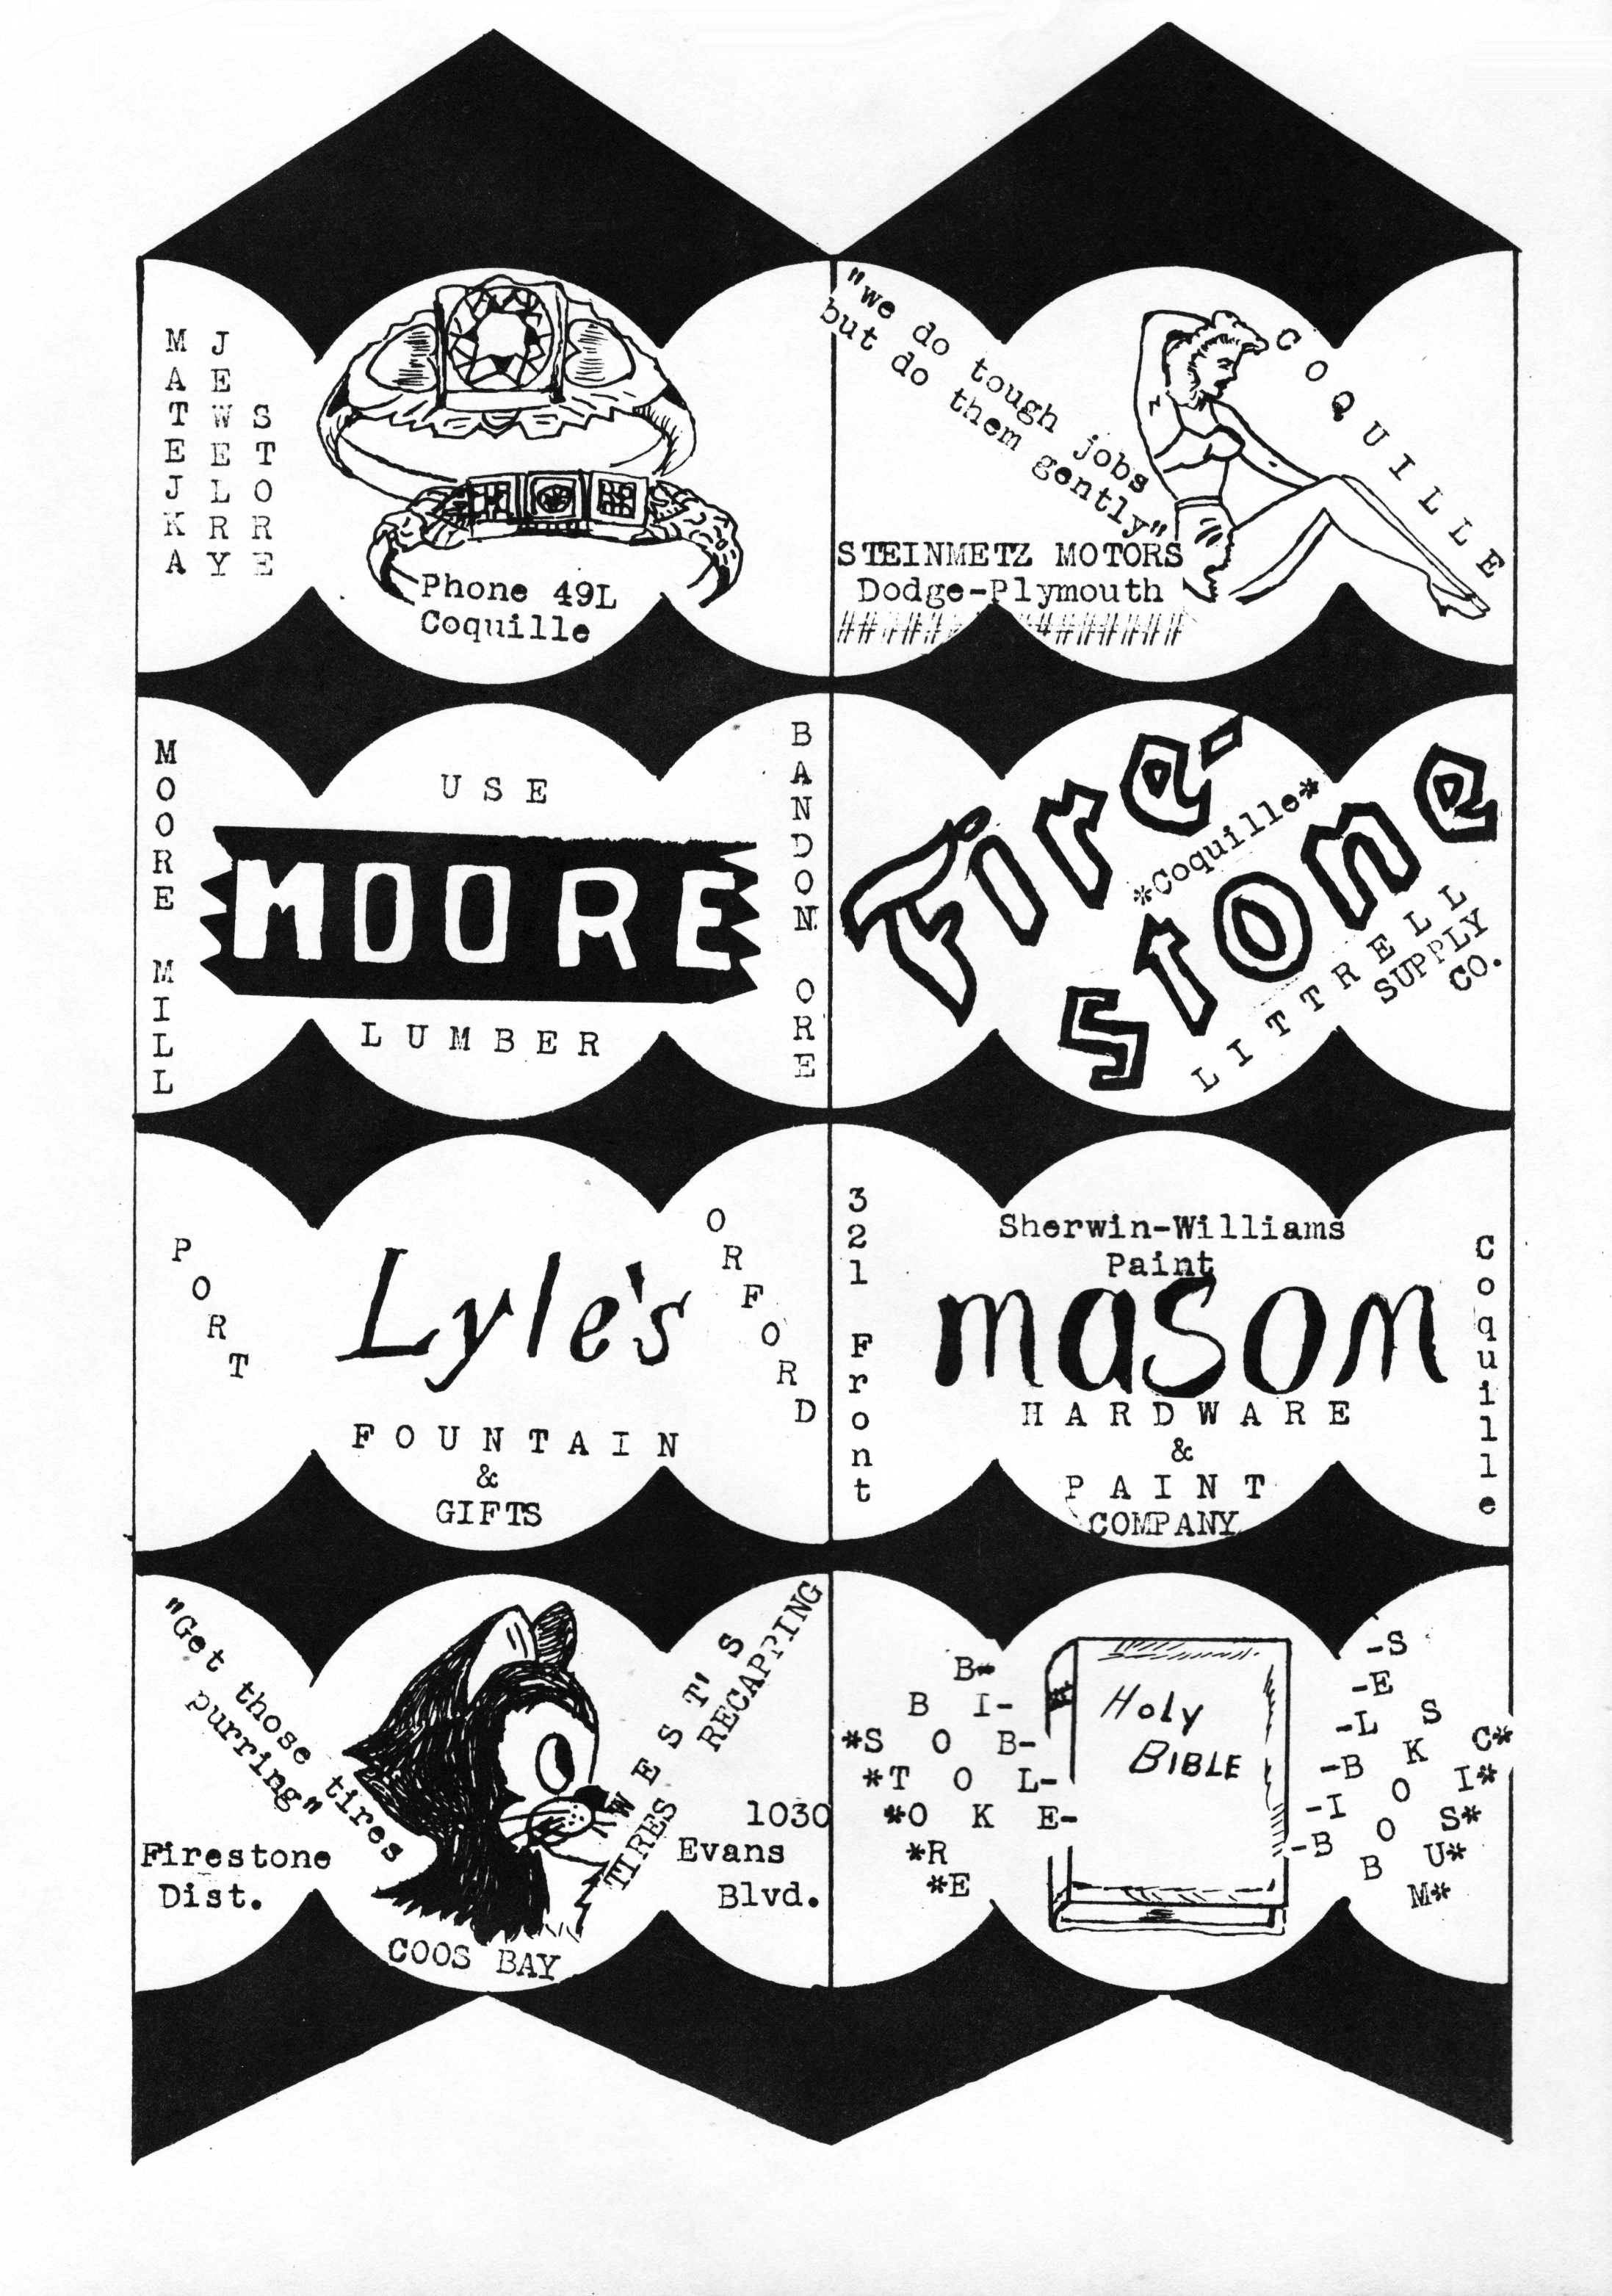 MATEJKA
JEWELRY
STORE
Phone 49L
Coquille
"we do tough jobs
but do them gently"
COQUILLE
STEINMETZ MOTORS
Dodge-Plymouth
MOORE MILL
USE
MOORE
LUMBER
BANDON ORE
Fire-
*Coquille*
stone
LITTRELL
SUPPLY
CO.
PORT
Lyle's
ORFORD
FOUNTAIN
&
GIFTS
321 Front
Sherwin-Williams
Paint
mason
HARDWARE
&
PAINT
COMPANY
Coquille
"Get those tires
purring"
WEST'S
TIRES RECAPPING
Firestone
Dist.
1030
Evans
Blvd.
COOS BAY
BIBLE-
BOOK
*STORE
Holy
BIBLE
-BIBLES
BOOKS
MUSIC*